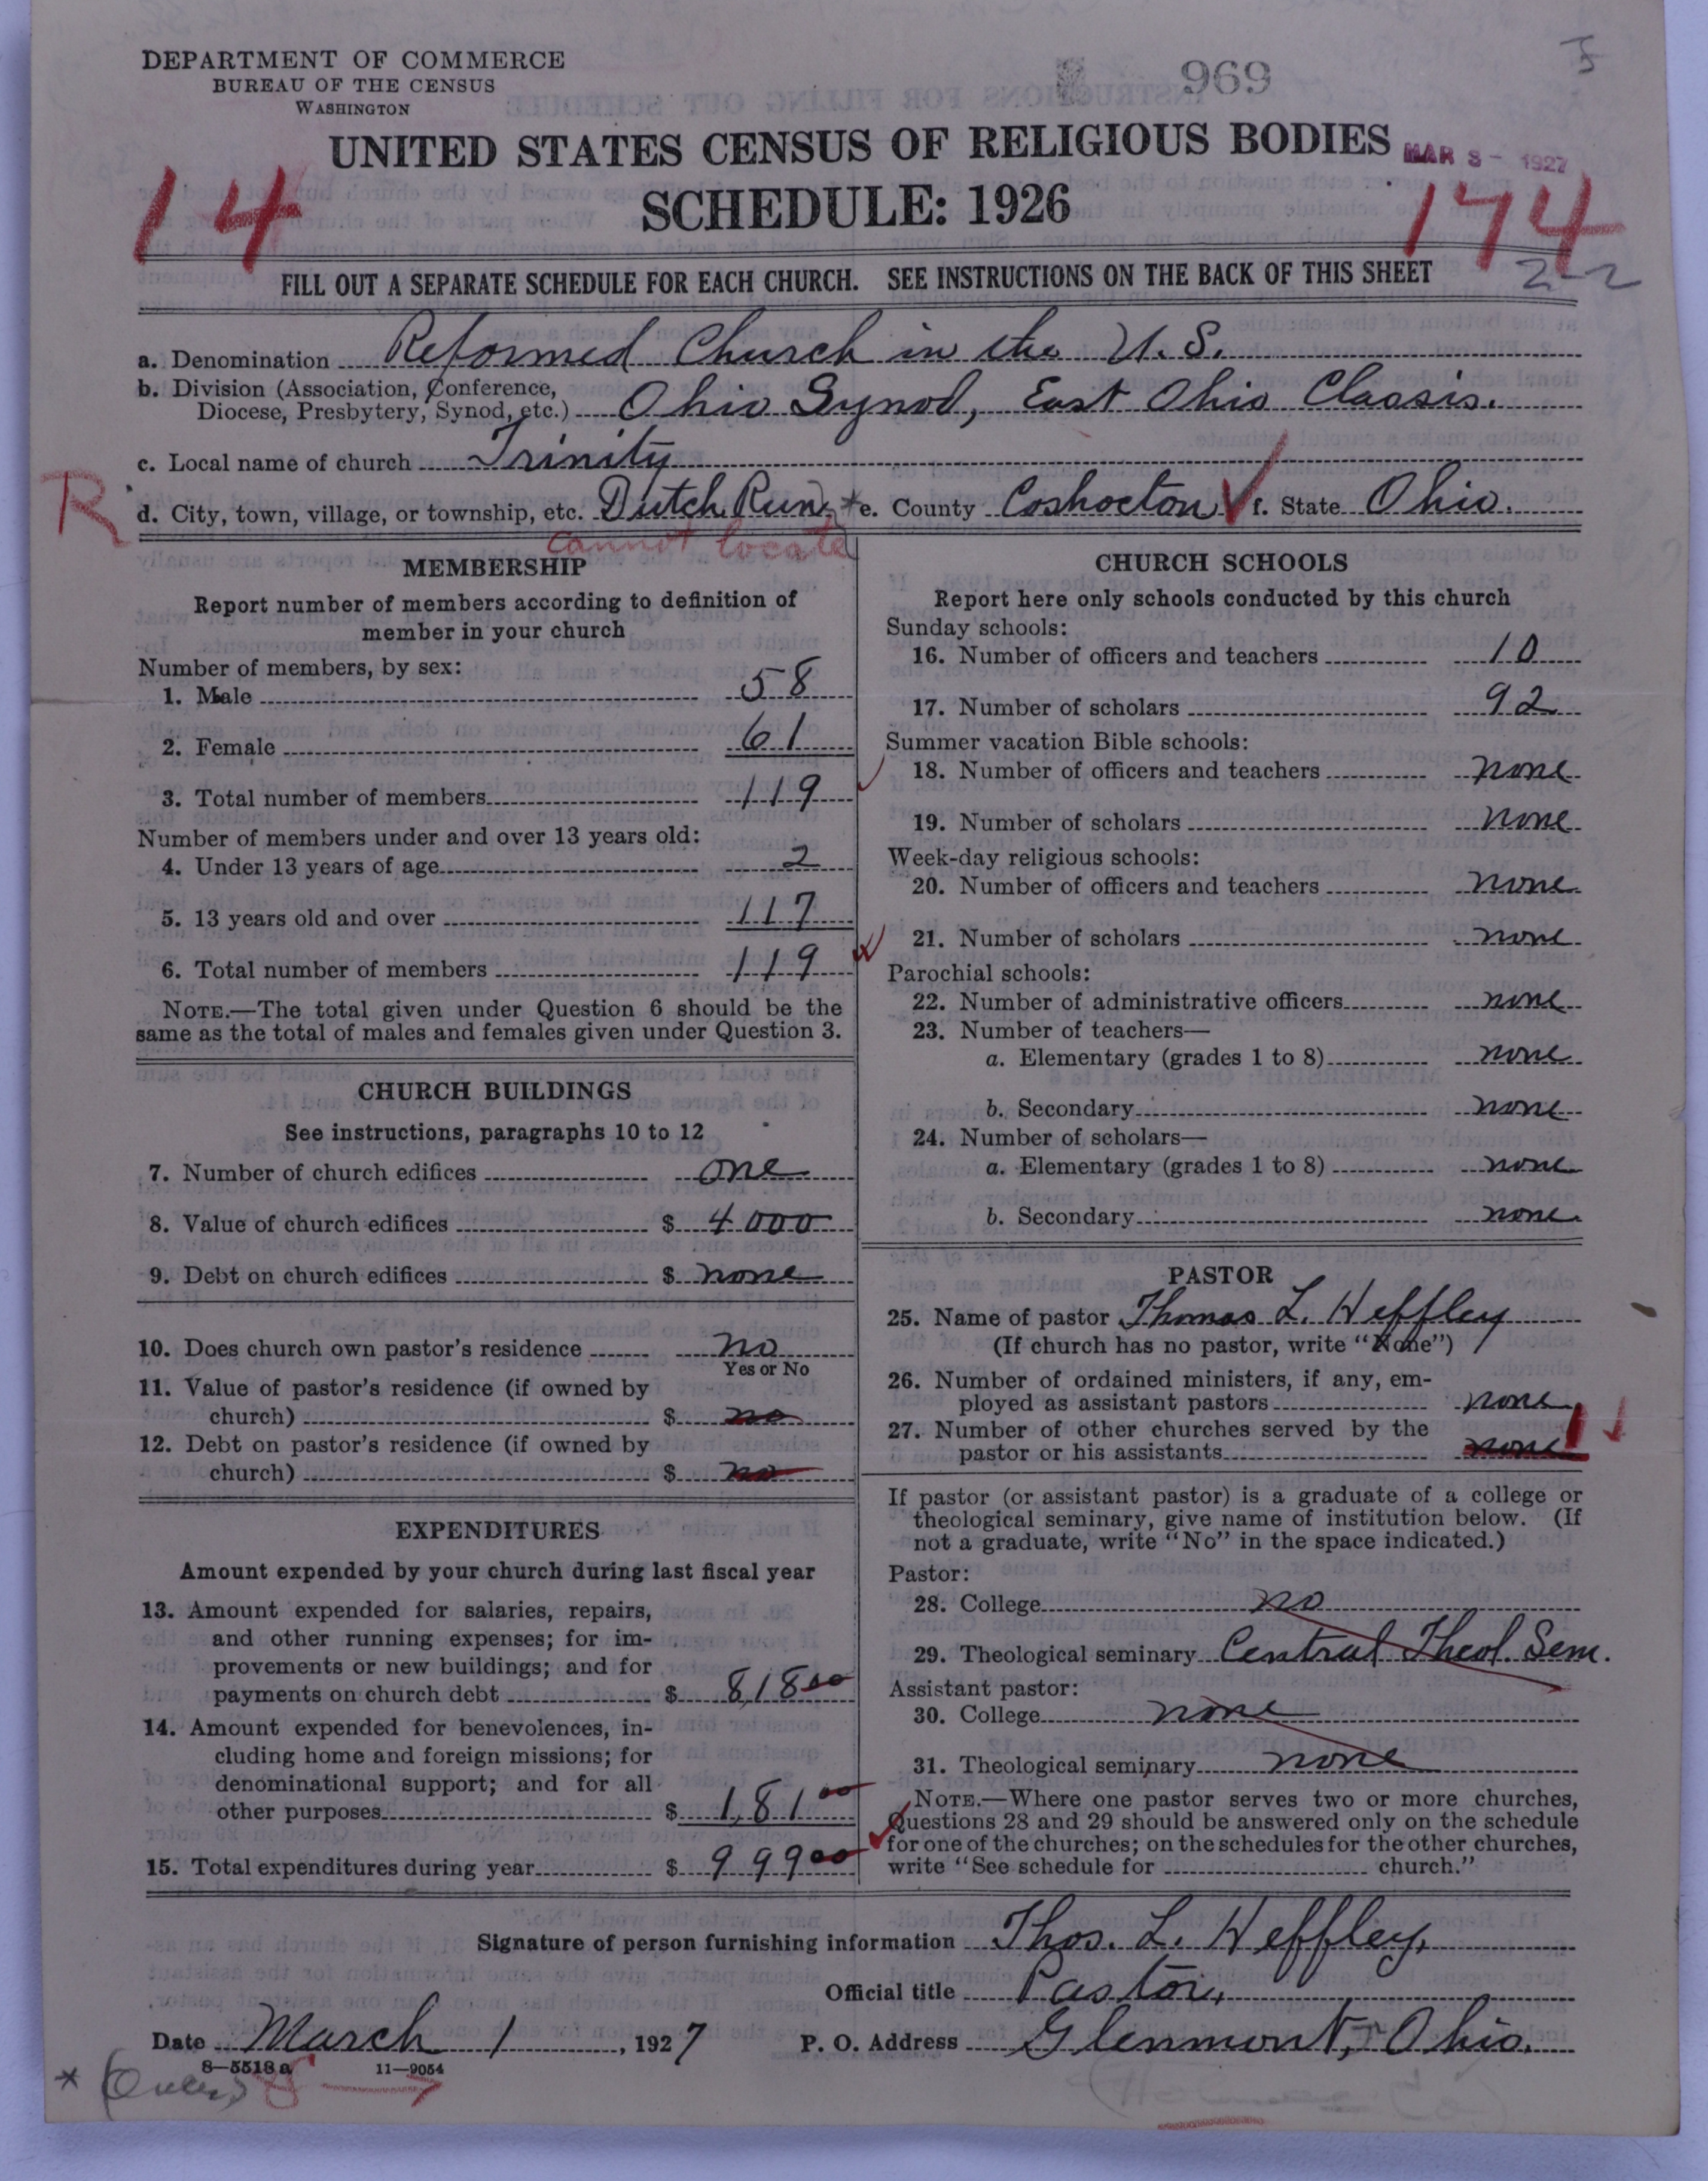 DEPARTMENT OF COMMERCE
BUREAU OF THE CENSUS
WASHINGTON
969
UNITED STATES CENSUS OF RELIGIOUS BODIES
MAR 3 - 1927
SCHEDULE: 1926
14
174
2-2
FILL OUT A SEPARATE SCHEDULE FOR EACH CHURCH. SEE INSTRUCTIONS ON THE BACK OF THIS SHEET
a. Denomination Reformed Church in the U. S.
b. Division (Association, Conference, Diocese, Presbytery, Synod, etc.) Ohio Synod, East Ohio Classis.
c. Local name of church Trinity
R
d. City, town, village, or township, etc. Dutch Run * e. County Coshocton f. State Ohio.
cannot locate
MEMBERSHIP
Report number of members according to definition of
member in your church
Number of members, by sex:
1. Male 58
2. Female 61
3. Total number of members 119
Number of members under and over 13 years old:
4. Under 13 years of age 2
5. 13 years old and over 117
6. Total number of members 119
NOTE.—The total given under Question 6 should be the
same as the total of males and females given under Question 3.
CHURCH BUILDINGS
See instructions, paragraphs 10 to 12
7. Number of church edifices one
8. Value of church edifices $ 4000
9. Debt on church edifices $ none
10. Does church own pastor's residence no
Yes or No
11. Value of pastor's residence (if owned by
church) $ no
12. Debt on pastor's residence (if owned by
church) $ no
EXPENDITURES
Amount expended by your church during last fiscal year
13. Amount expended for salaries, repairs,
and other running expenses; for im-
provements or new buildings; and for
payments on church debt $ 818 00
14. Amount expended for benevolences, in-
cluding home and foreign missions; for
denominational support; and for all
other purposes $ 181 00
15. Total expenditures during year $ 999 00
CHURCH SCHOOLS
Report here only schools conducted by this church
Sunday schools:
16. Number of officers and teachers 10
17. Number of scholars 92
Summer vacation Bible schools:
18. Number of officers and teachers none
19. Number of scholars none
Week-day religious schools:
20. Number of officers and teachers none
21. Number of scholars none
Parochial schools:
22. Number of administrative officers none
23. Number of teachers—
a. Elementary (grades 1 to 8) none
b. Secondary none
24. Number of scholars—
a. Elementary (grades 1 to 8) none
b. Secondary none
PASTOR
25. Name of pastor Thomas L. Heffley
(If church has no pastor, write "None")
26. Number of ordained ministers, if any, em-
ployed as assistant pastors none
27. Number of other churches served by the
pastor or his assistants none 1
If pastor (or assistant pastor) is a graduate of a college or
theological seminary, give name of institution below. (If
not a graduate, write "No" in the space indicated.)
Pastor:
28. College no
29. Theological seminary Central Theol. Sem.
Assistant pastor:
30. College none
31. Theological seminary none
NOTE.—Where one pastor serves two or more churches,
Questions 28 and 29 should be answered only on the schedule
for one of the churches; on the schedules for the other churches,
write "See schedule for church."
Signature of person furnishing information Thos. L. Heffley,
Official title Pastor,
Date March 1, 1927 P. O. Address Glenmont, Ohio.
8—5518 a 11—9054
* (Over)